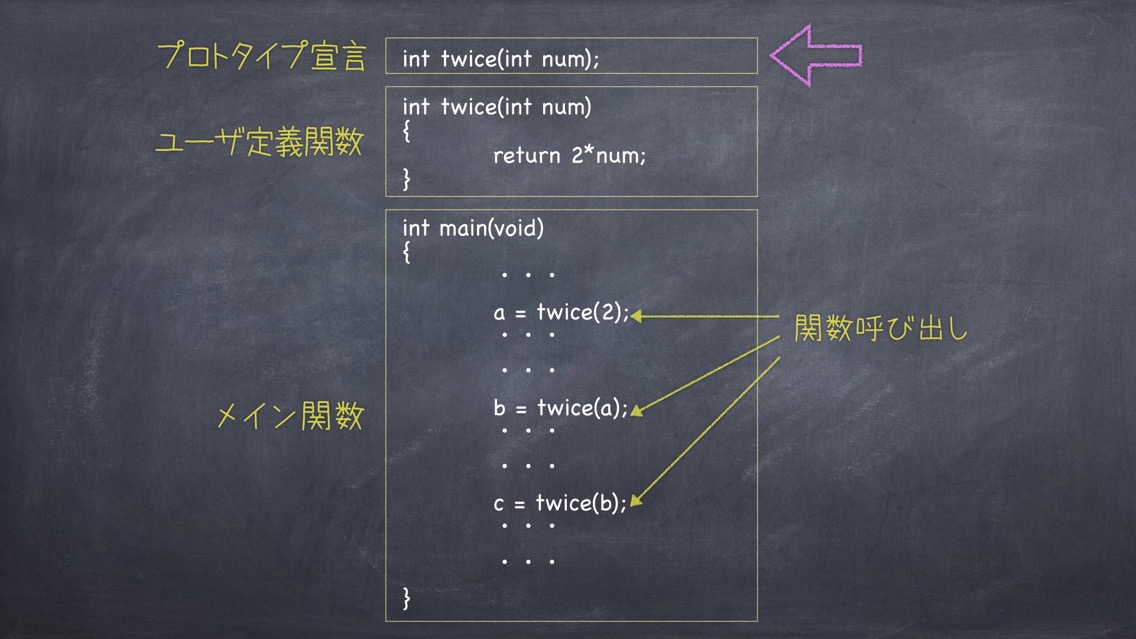 プロトタイプ宣言
int twice(int num);
ユーザ定義関数
int twice(int num)
{
return 2*num;
}
メイン関数
int main(void)
{
・・・
a = twice(2);
・・・
・・・
b = twice(a);
・・・
・・・
c = twice(b);
・・・
・・・
}
関数呼び出し